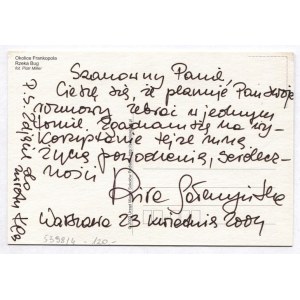 Okolice Frankopola
Rzeka Bug
fot. Piotr Miller
Szanowny Panie,
Cieszę się, że planuje Pan swoje
rozmowy zebrać w jednym
tomie. Zgadzam się na wy-
korzystanie tejże mną.
Życzę powodzenia, serdecz-
ności
Warszawa 23 kwietnia 2004
P.S. Zdjęcie
5398/4 -120.-